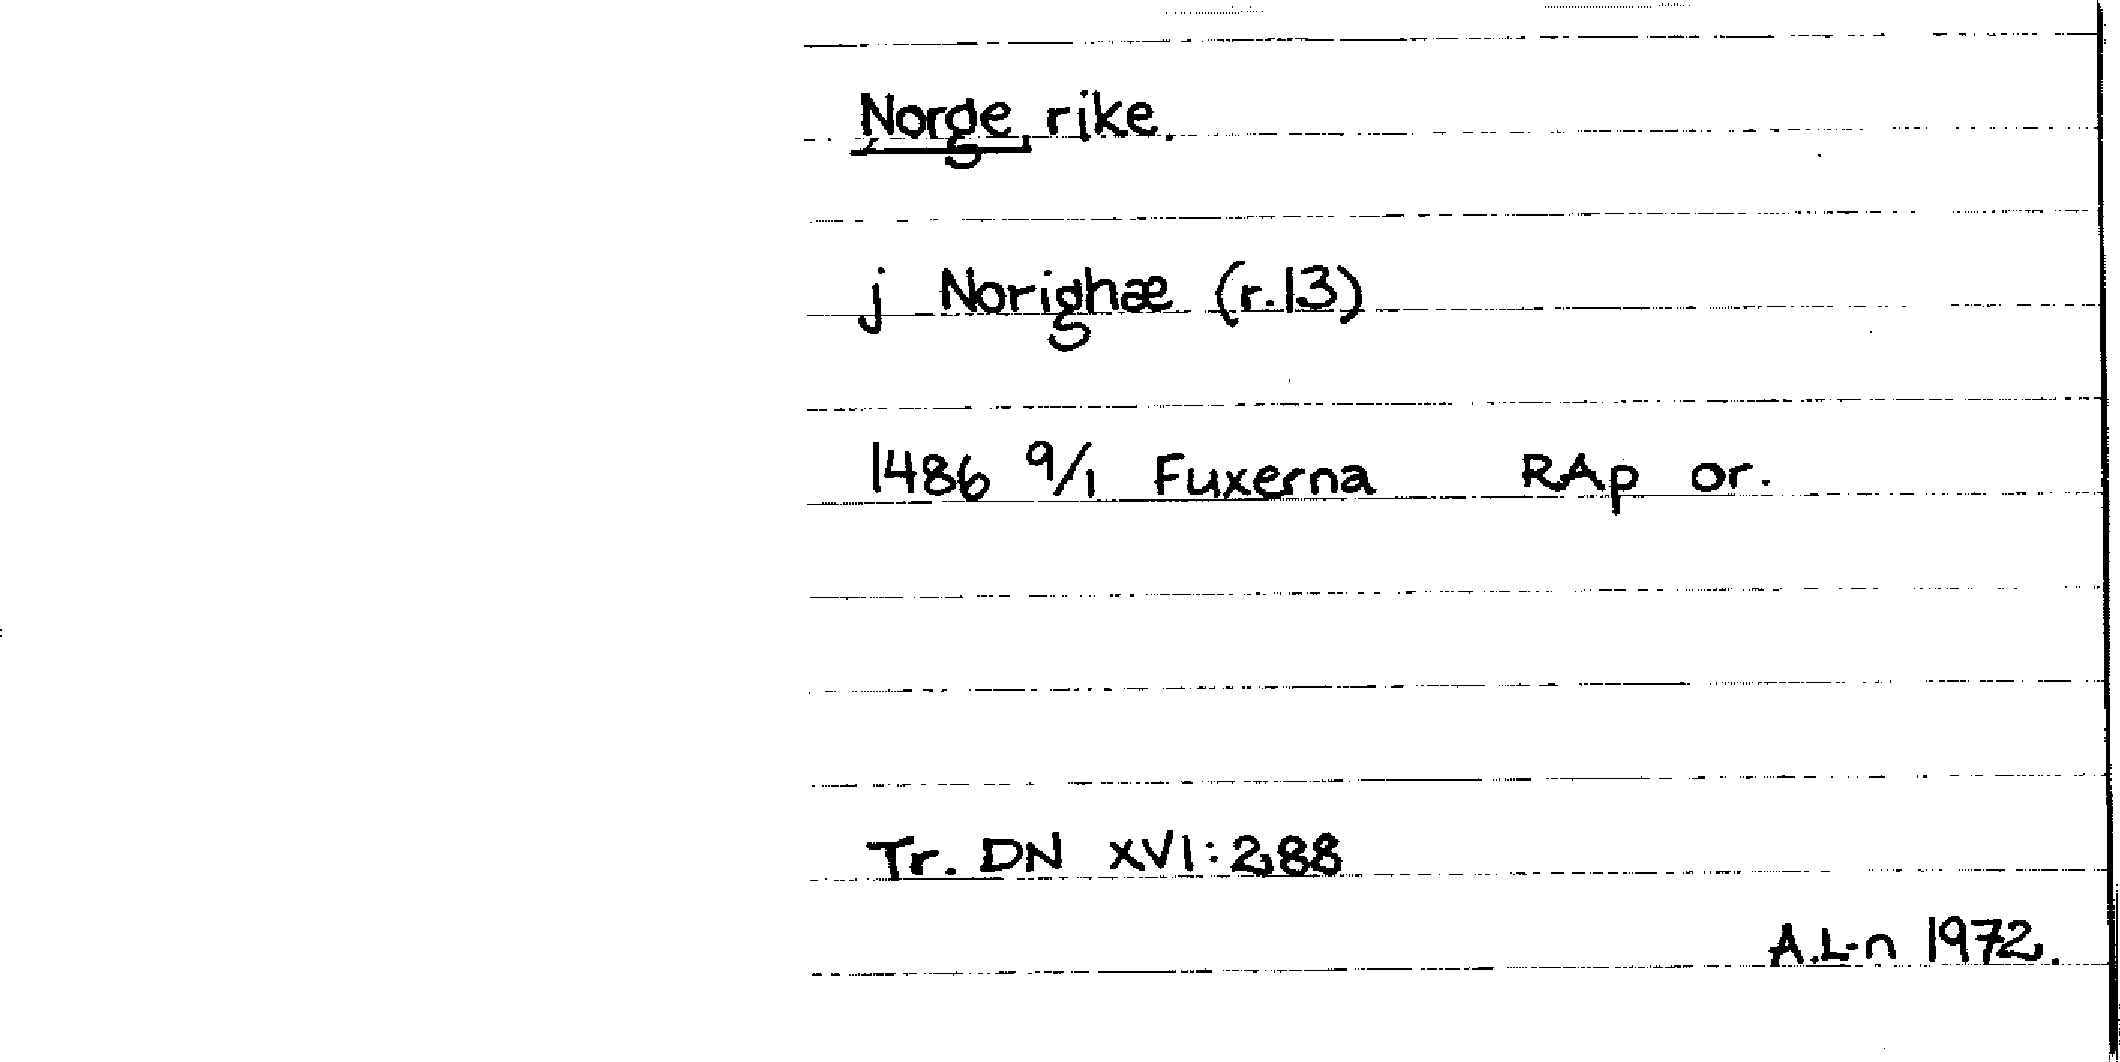 Norge, rike.
j Norighæ (r.13)
1486 9/1 Fuxerna RAp or.
Tr. DN XVI:288
A.L-n 1972.